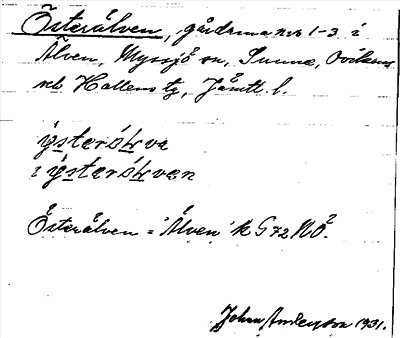 Österälven, gårdarna nrs 1-3 i
Älven, Myssjö sn, Sunne, Ovikens
o. Hallens tg, Jämtl. l.
ẏsteró
i ẏsteró
Österälven = 'Älven' k G72 NÖ².
Johan Anderson 1931.